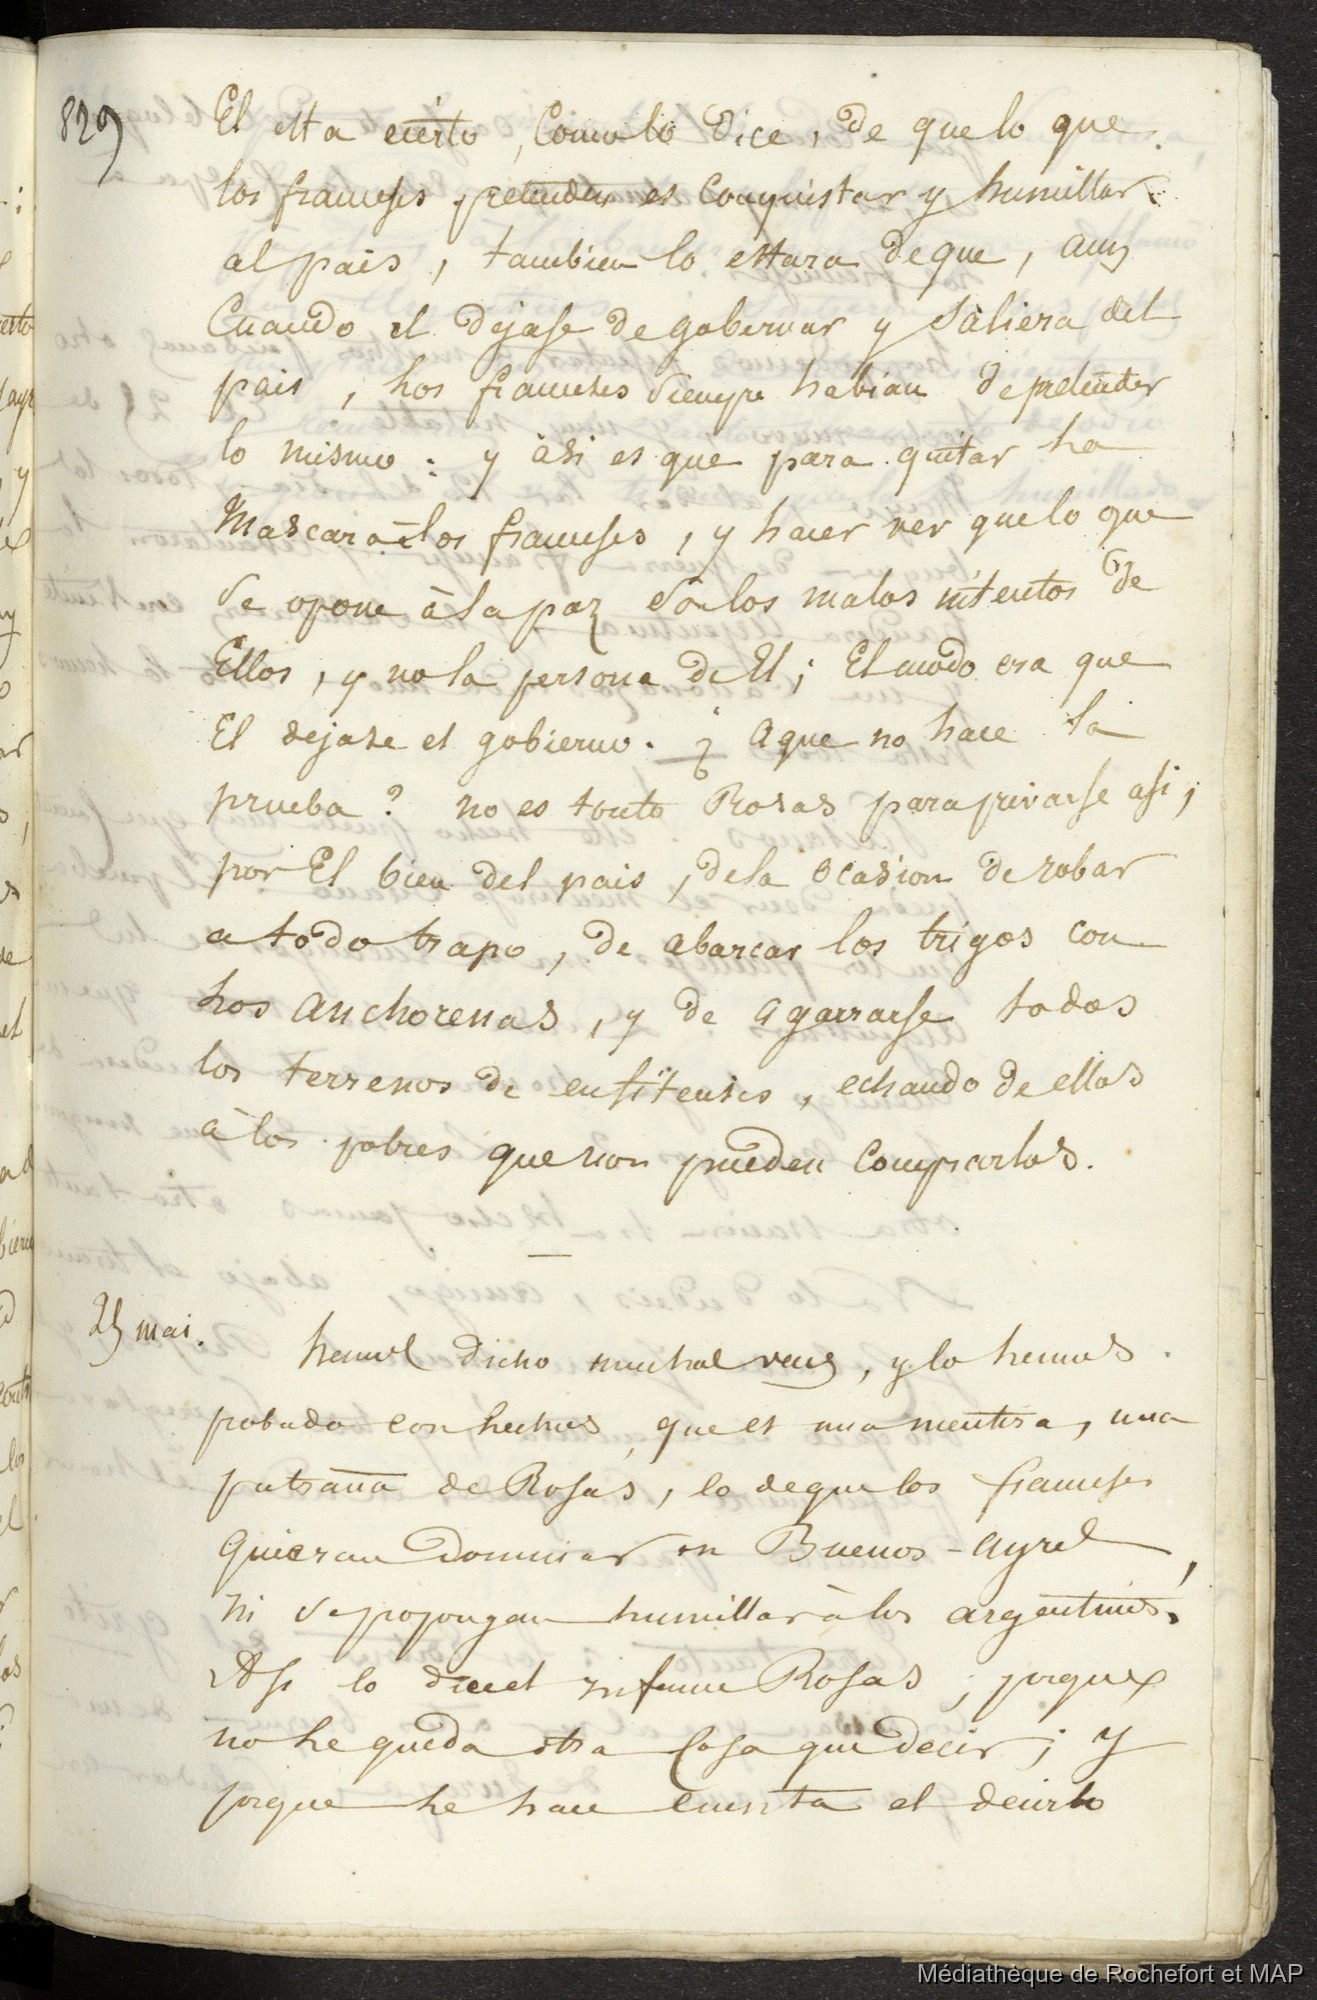 829
El esta cierto, Como lo dice, de que lo que
los franceses pretenden es Conquistar y humillar
al pais, tambien lo estara de que, aun
Cuando el dejase de gobernar y Saliera del
pais, hos franceses Siempre habian de pretender
lo mismo : y àsi es que para quitar ha
Mascara à los franceses, y hacer ver que lo que
Se opone à la paz Son los malos intentos de
Ellos, y no la persona de El ; El modo era que
El dejase el gobierno. ¿ A que no hace la
prueba ? no es tonto Rosas para privarse asi,
por El bien del pais, de la ocasion de robar
a todo trapo, de abarcar los trigos con
hos anchorenas, y de agarrarse todos
los terrenos de enfiteusis, echando de ellos
à los pobres que non pueden Comprarlos.
25 mai.
hemos dicho muchas veces, y lo hemos
probado con hechos, que es una mentira, una
patraña de Rosas, lo de que los franceses
quieran Dominar en Buenos-ayres,
ni Se propongan humillar à los argentinos.
Asi lo dice el infame Rosas, porque
no he queda otra Cosa que decir ; y
porque he hace Cuenta el decirlo
Médiathèque de Rochefort et MAP